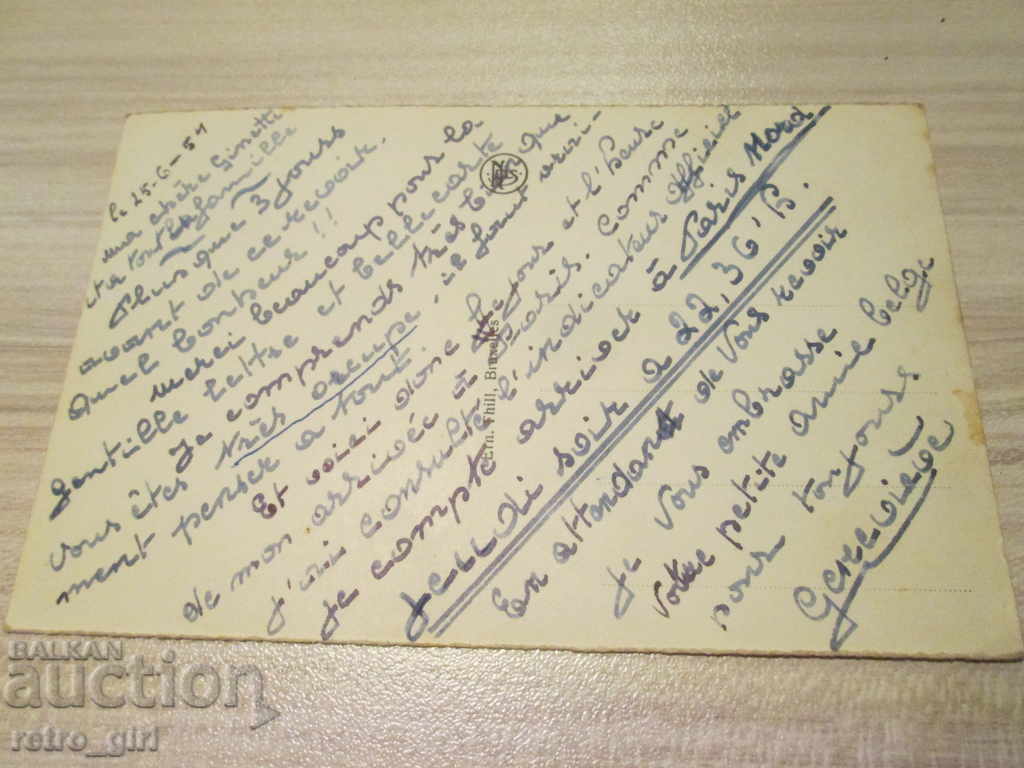 le 25-6-51
ma chère Ginette
et ta famille
Plus que 3 jours
avant de se revoir.
Quel bonheur !!
merci beaucoup pour la
gentille lettre et belle carte
Je comprends très bien que
vous êtes très occupé, il faut
ment penser à tout.
Et voici donc le jour et l'heure
de mon arrivée à Paris. Comme
j'ai consulté l'indicateur officiel
je compte arriver à Paris Nord
jeudi soir à 22,36 h.
En attendant de vous revoir
je vous embrasse
votre petite amie belge
pour toujours
Geneviève
Ern. Thill, Bruxelles
BALKAN
auction
retro_girl